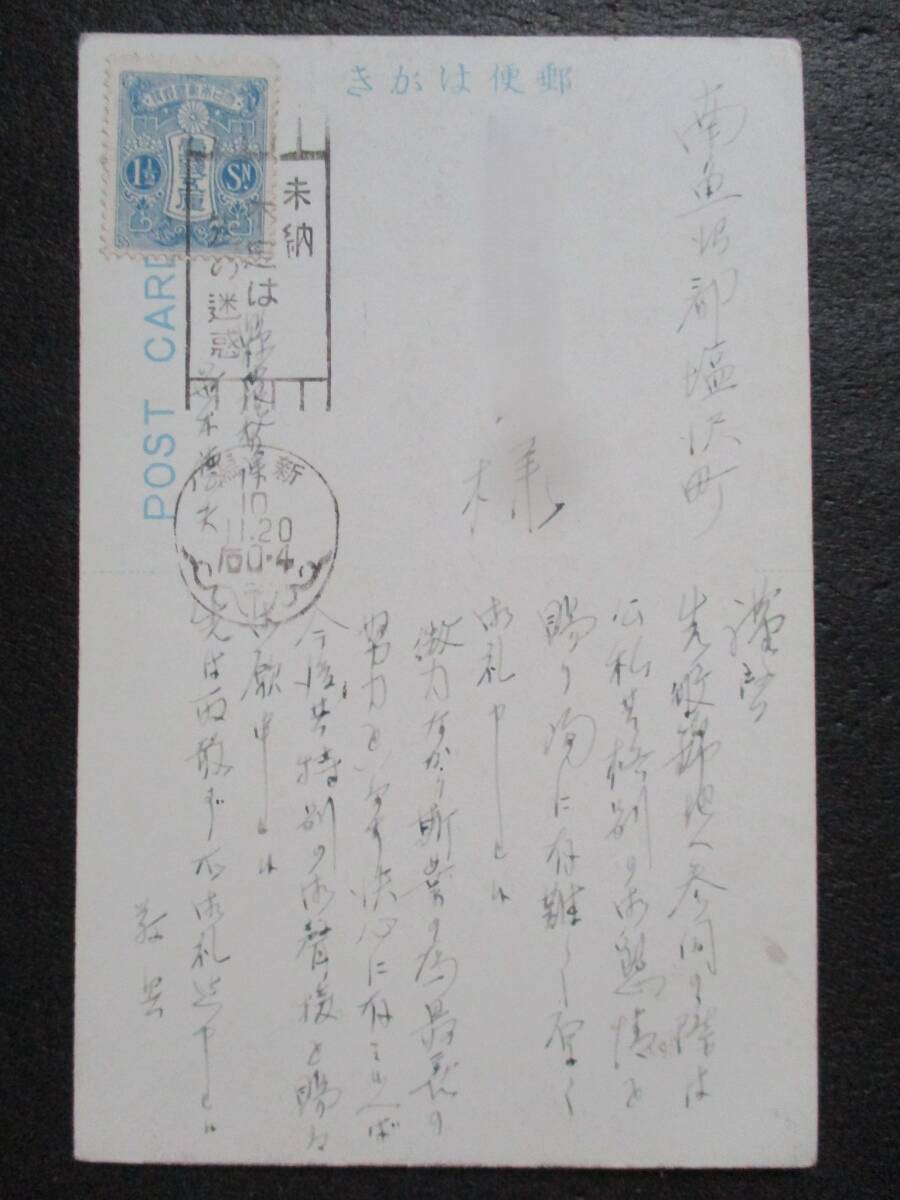 郵便はがき
POST CARD
大日本帝國郵便
壹錢五厘
1½ SN
未納
不足は
迷惑
新潟
10
11.20
后0-4
南魚沼郡塩沢町
様
謹啓
先般御地へ参向の際は
公私共格別の御懇情を
賜り洵に有難く厚く
御礼申上候
微力ながら斯業の為最善の
努力を致す決心に有之候へば
今後共特別の御聲援を賜り度
御願申上候
先は取敢ず御礼迄申上候
敬具